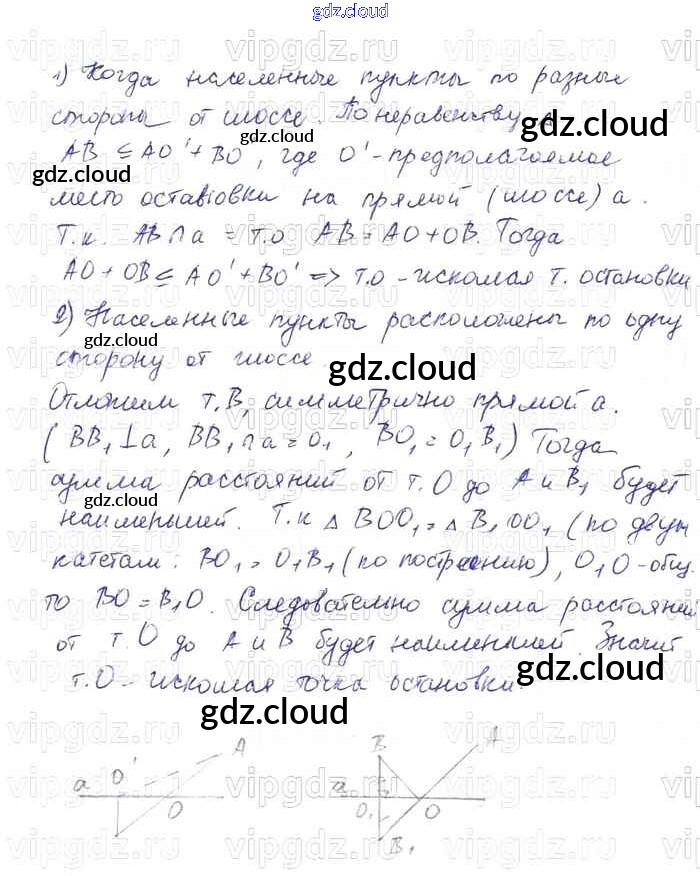 gdz.cloud
vipgdz.ru vipgdz.ru vipgdz.ru
1) Когда населенные пункты по разные
стороны от шоссе. По неравенству
gdz.cloud gdz.cloud
AB ≤ AO' + BO', где O' - предполагаемое
gdz.cloud gdz.cloud
место остановки на прямой (шоссе) a.
Т.к. AB ∩ a = т.O AB = AO + OB. Тогда
AO + OB ≤ AO' + BO' => т.O - искомая т. остановки
gdz.cloud
2) Населенные пункты расположены по одну
сторону от шоссе
gdz.cloud
Отложим т. B₁ симметрично прямой a.
(BB₁ ⊥ a, BB₁ ∩ a = O₁, BO₁ = O₁B₁) Тогда
gdz.cloud
сумма расстояний от т. O до A и B₁ будет
gdz.cloud
наименьшей. Т.к △ BOO₁ = △ B₁OO₁ (по двум
gdz.cloud
катетам: BO₁ = O₁B₁ (по построению), O₁O - общ.
то BO = B₁O. Следовательно сумма расстояний
gdz.cloud
от т. O до A и B будет наименьшей. Значит
gdz.cloud
т. O - искомая точка остановки.
gdz.cloud
a O' A O
B A a O₁ O B₁